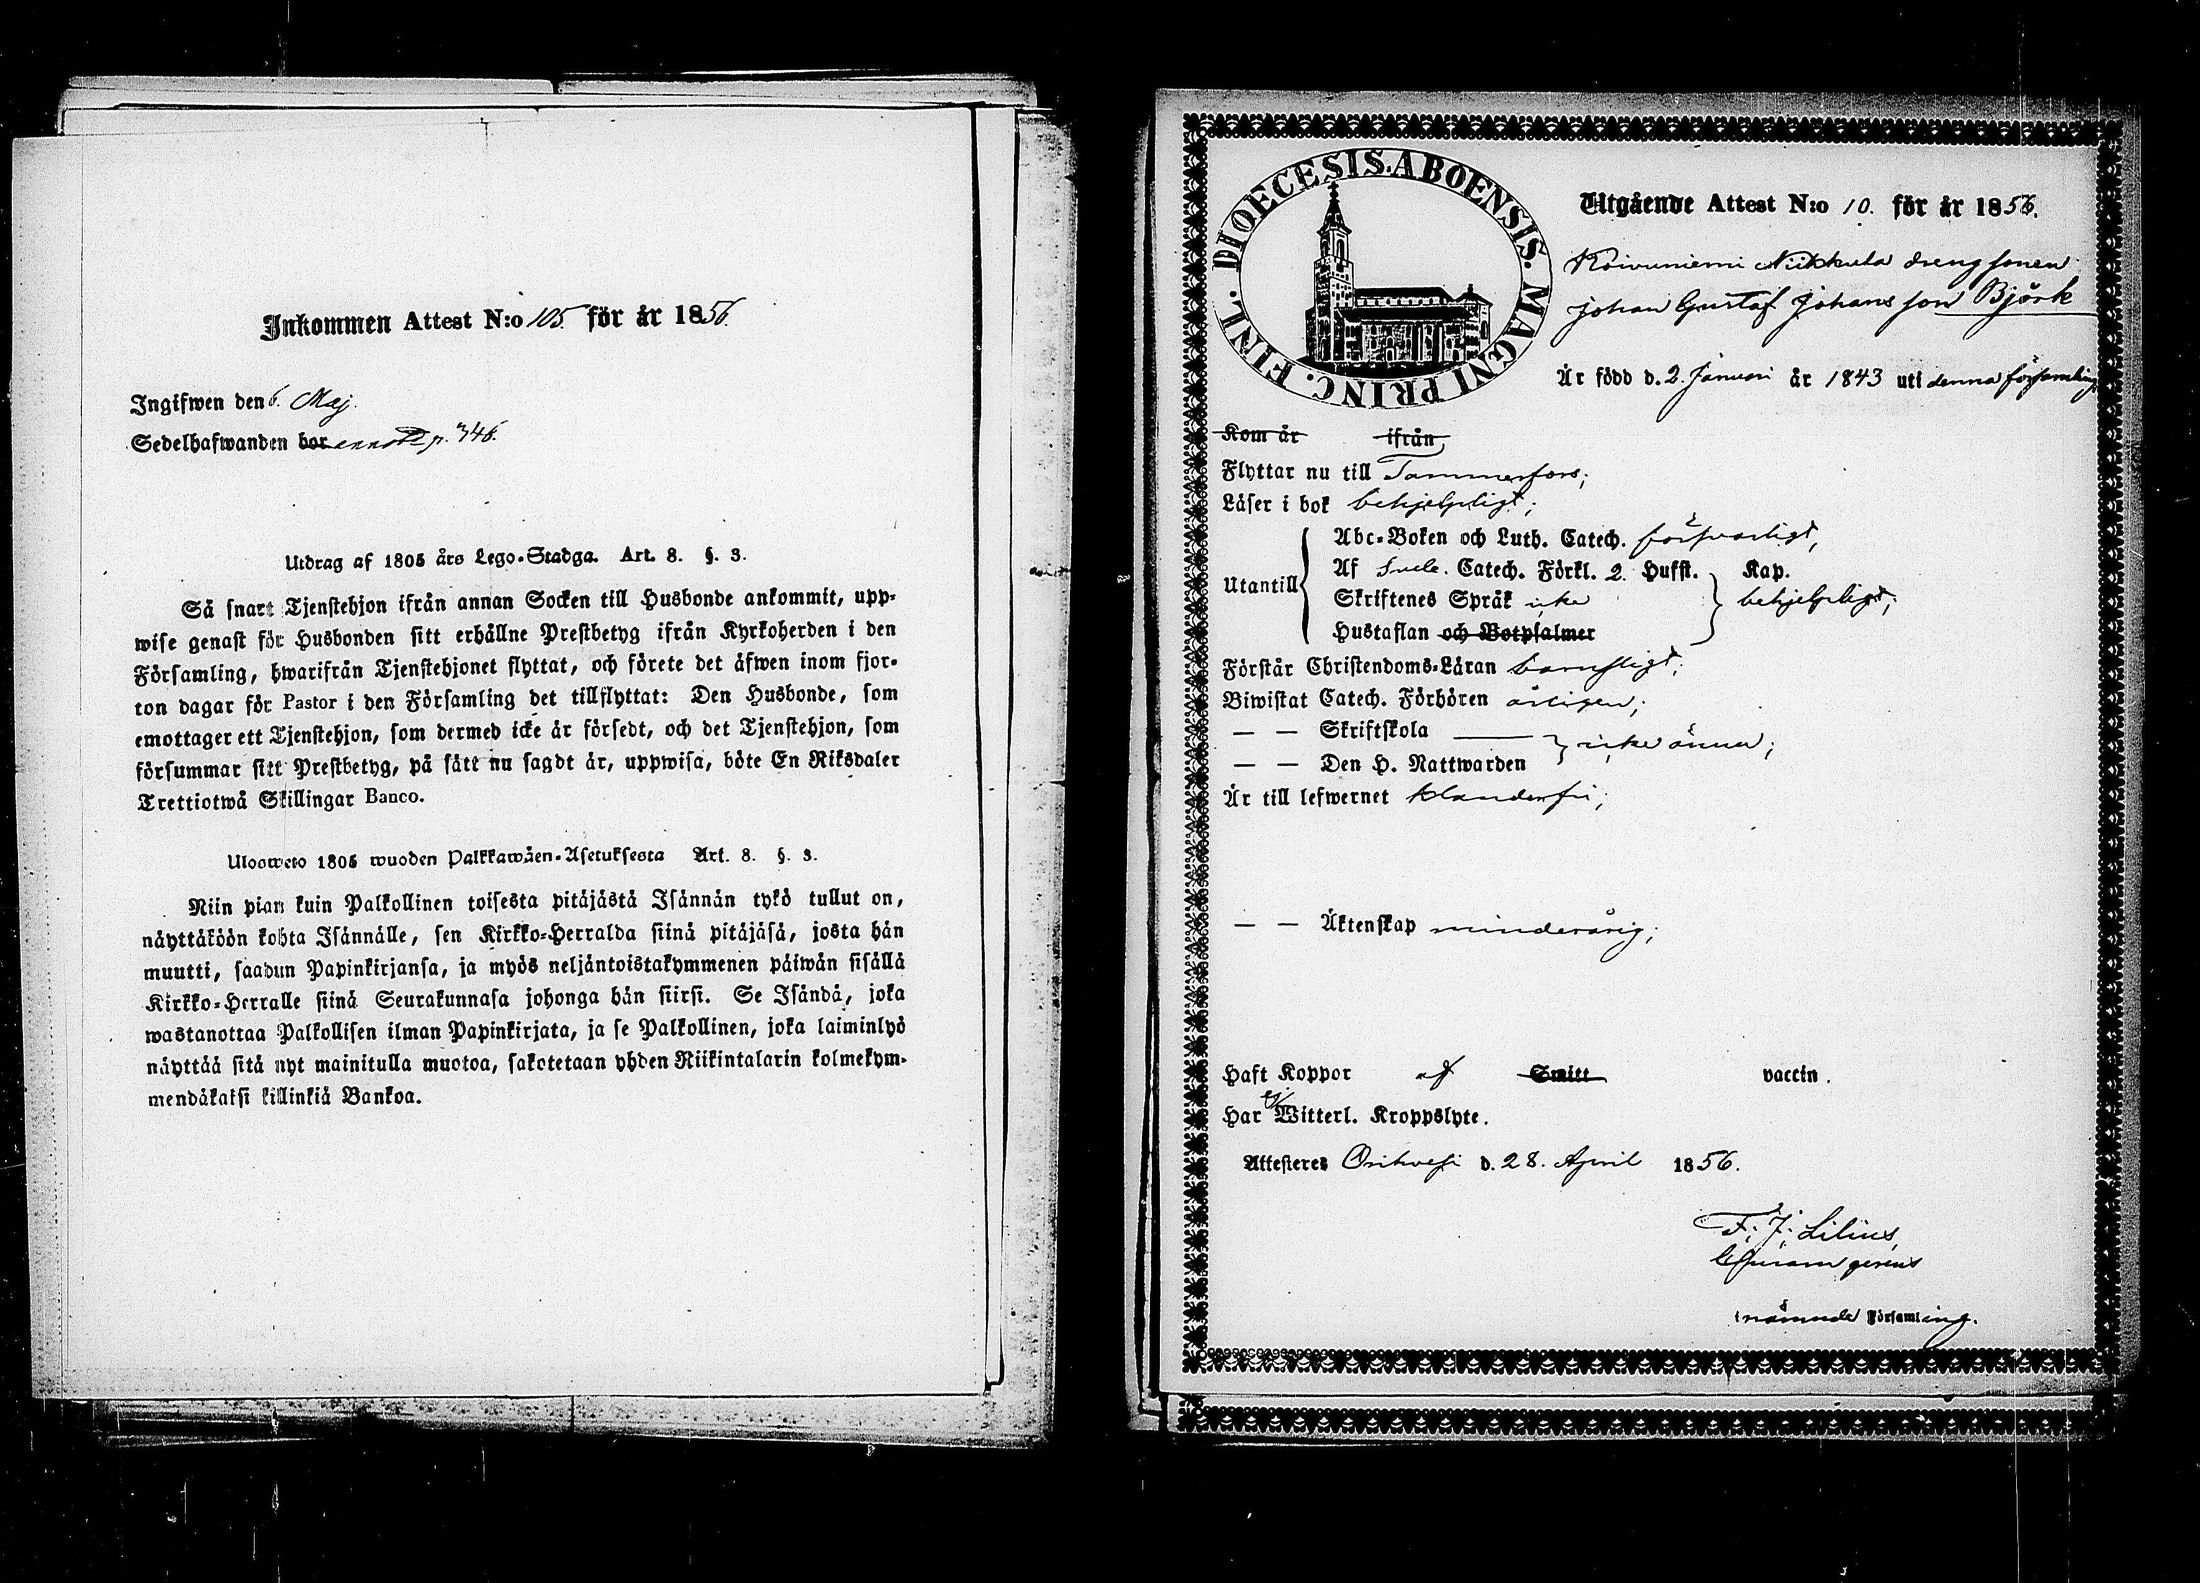 Inkommen Attest N:o 105. för år 1856.
Ingifwen den 6. Maj.
Sedelhafwanden bor annot. p. 346.
Utdrag af 1805 års Lego-Stadga. Art. 8. §. 3.
Så snart Tjenstehjon ifrån annan Socken till Husbonde ankommit, upp-
wise genast för Husbonden sitt erhållne Prestbetyg ifrån Kyrkoherden i den
Församling, hwarifrån Tjenstehjonet flyttat, och förete det äfwen inom fjor-
ton dagar för Pastor i den Församling det tillflyttat: Den Husbonde, som
emottager ett Tjenstehjon, som dermed icke är försedt, och det Tjenstehjon, som
försummar sitt Prestbetyg, på sätt nu sagdt är, uppwisa, böte En Riksdaler
Trettiotwå Skillingar Banco.
Ulosweto 1805 wuoden Palkkawäen-Asetuksesta Art. 8. §. 3.
Niin pian kuin Palkollinen toisesta pitäjästä Isännän tykö tullut on,
näyttäköön kohta Isännälle, sen Kirkko-Herralda siinä pitäjäsä, josta hän
muutti, saadun Papinkirjansa, ja myös neljäntoistakymmenen päiwän sisällä
Kirkko-Herralle siinä Seurakunnasa johonga hän siirsi. Se Isändä, joka
wastanottaa Palkollisen ilman Papinkirjata, ja se Palkollinen, joka laiminlyö
näyttää sitä nyt mainitulla muotoa, sakotetaan yhden Riikintalarin kolmekym-
mendäkaksi killinkiä Bankoa.
DIOECESIS. ABOENSIS. MAGNI PRINC. FINL.
Utgående Attest N:o 10. för år 1856.
Koivuniemi Niikkula drengsonen
Johan Gustaf Johansson Björk
Är född d. 2. Januari år 1843 uti denna församling
Kom år ifrån
Flyttar nu till Tammerfors;
Läser i bok behjelpligt;
Abc-Boken och Luth. Catech. försvarligt,
Utantill Af Sveb. Catech. Förkl. 2. Hufst. Kap.
Skriftenes Språk icke behjelpligt;
Hustaflan och Botpsalmer
Förstår Christendoms-Läran barnsligt;
Biwistat Catech. Förhören årligen;
— — Skriftskola icke ännu;
— — Den H. Nattwarden
Är till lefwernet klanderfri;
— — Äktenskap minderårig;
Haft Koppor af Smitt vaccin.
Har ej Witterl. Kroppslyte.
Attesteres Orihvesi d. 28. April 1856.
F. J. Lilius,
Curam gerens
i nämnde Församling.